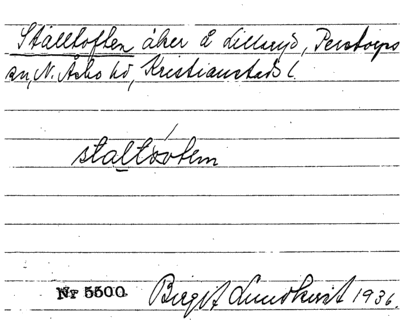 Ställtoften åker å Lillaryd, Perstorps
sn, N. Åsbo hd, Kristianstads l.
Nr 5500. Birgit Lundkvist 1936.